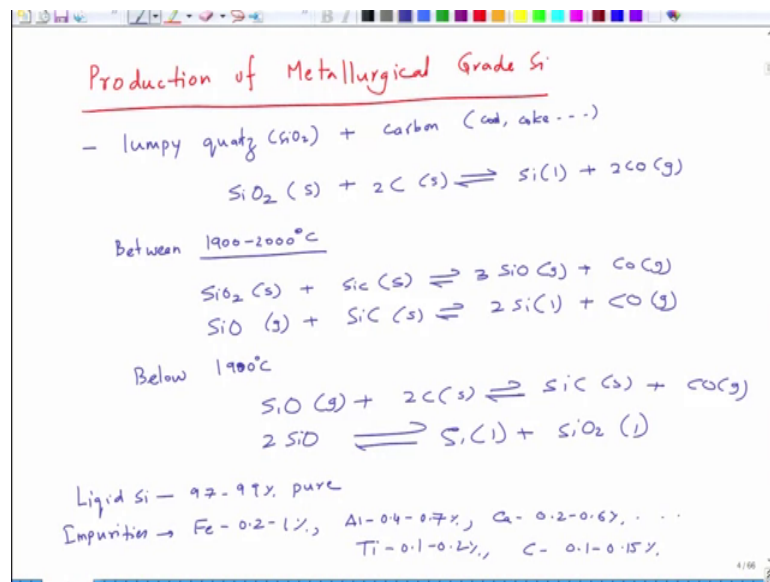 Production of Metallurgical Grade Si
- lumpy quatz (SiO2) + carbon (coal, coke ---)
SiO2 (s) + 2C (s) ⇌ Si(l) + 2CO (g)
Between 1900-2000°C
SiO2 (s) + SiC (s) ⇌ 3 SiO (g) + CO (g)
SiO (g) + SiC (s) ⇌ 2 Si(l) + CO (g)
Below 1900°C
SiO (g) + 2C(s) ⇌ SiC (s) + CO(g)
2 SiO ⇌ Si(l) + SiO2 (l)
Liqid Si - 97-99% pure
Impurities → Fe - 0.2-1%, Al-0.4-0.7%, Ca- 0.2-0.6%, ....
Ti-0.1-0.2%, C- 0.1-0.15%
4/66